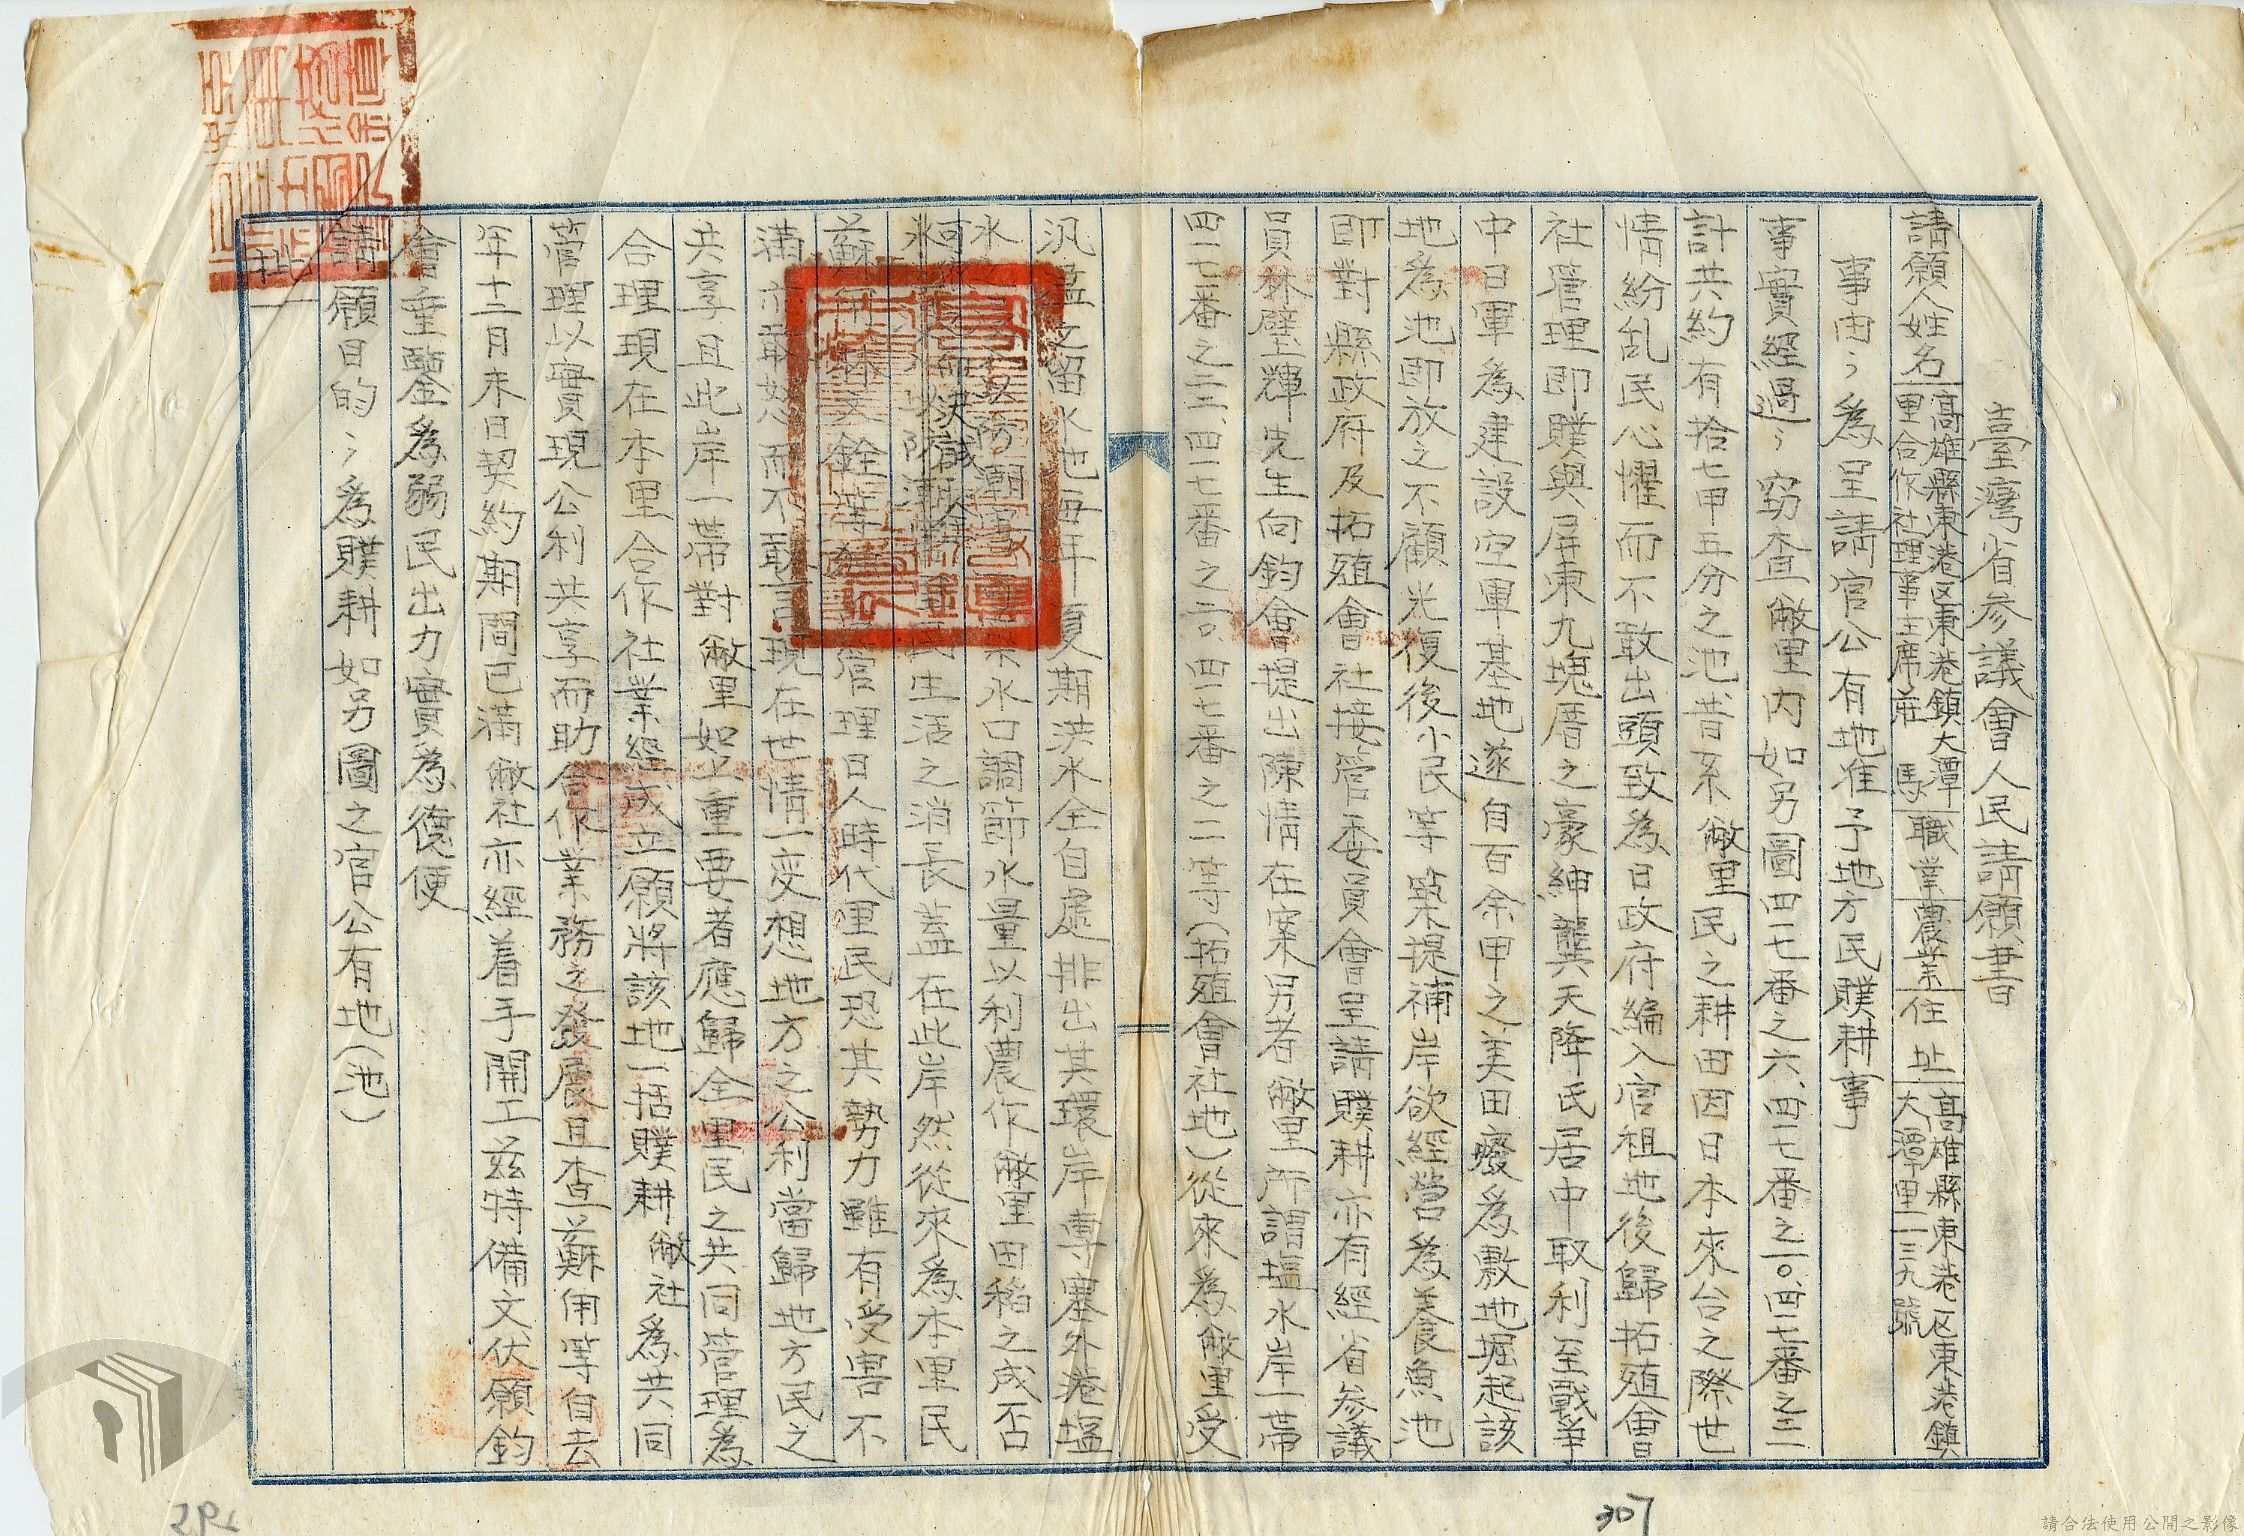 臺灣省參議會人民請願書
請願人姓名
高雄縣東港区東港鎮大潭
里合作社理事主席莊 馬
職業
農業
住址
高雄縣東港区東港鎮
大潭里一三九號
事由：為呈請官公有地准予地方民贌耕事
事實經過：窃查敝里内如另圖四七番之六、四七番之一〇、四七番之三
計共約有拾七甲五分之池、昔系敝里民之耕田因日本來台之際世
情紛乱民心懼而不敢出頭致為日政府編入官祖地後歸拓殖會
社管理即贌與屏東九塊厝之豪紳龔天降氏居中取利至戰爭
中日軍為建設空軍基地遂自百余甲之美田癈為敷地堀起該
地為池即放之不顧光復後小民等築提補岸欲經營為養魚池
即對縣政府及拓殖會社接管委員會呈請贌耕亦有經省參議
員林壁輝先生向鈞會提出陳情在案另者敝里所謂塩水岸一帶
四七番之三、四七番之六〇、四七番之二等（拓殖會社地）從來為敝里受
汎溢之留水池每年夏期洪水全自處排出其環岸專塞外港塩
水 以防潮 水口調節水量以利農作敝里田稻之成否
生活之消長蓋在此岸然從來為本里民
蘇 銓等 管理日人時代里民恐其勢力雖有受害不
滿亦敢怒而不敢言現在世情一变想地方之公利當歸地方民之
共享且此岸一帶對敝里如此重要者應歸全里民之共同管理為
合理現在本里合作社業經成立願將該地一括贌耕敝社為共同
管理以實現公利共享而助合作業務之發展且查蘇 等自去
年十二月末日契約期間已滿敝社亦經着手開工茲特備文伏願鈞
會重鑒為弱民出力實為德便
請願目的：為贌耕如另圖之官公有地（池）
批
307
請合法使用公開之影像